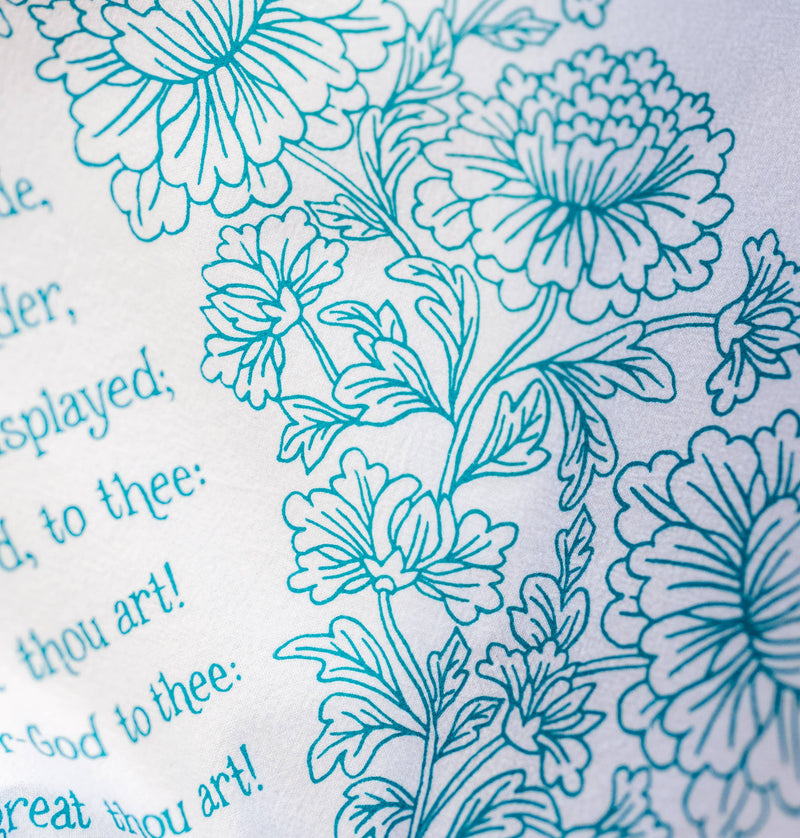 de,
der,
splayed;
d, to thee:
thou art!
r-God to thee:
great thou art!